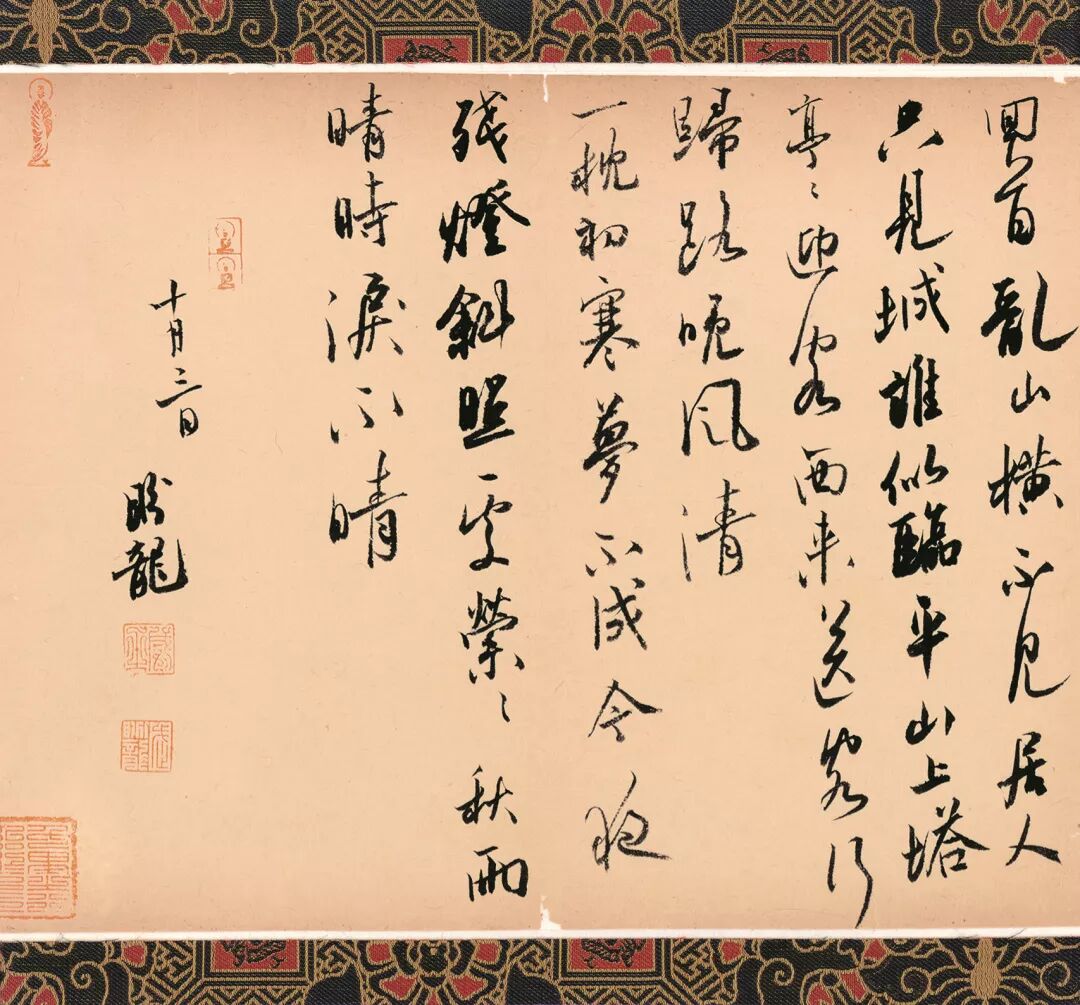 回首亂山横不見居人
只見城誰似臨平山上塔
亭〻迎客西来送客行
歸路晚風清
一枕初寒夢不成今夜
残燈斜照處熒〻秋雨
晴時淚不晴
十月三日
盼龍